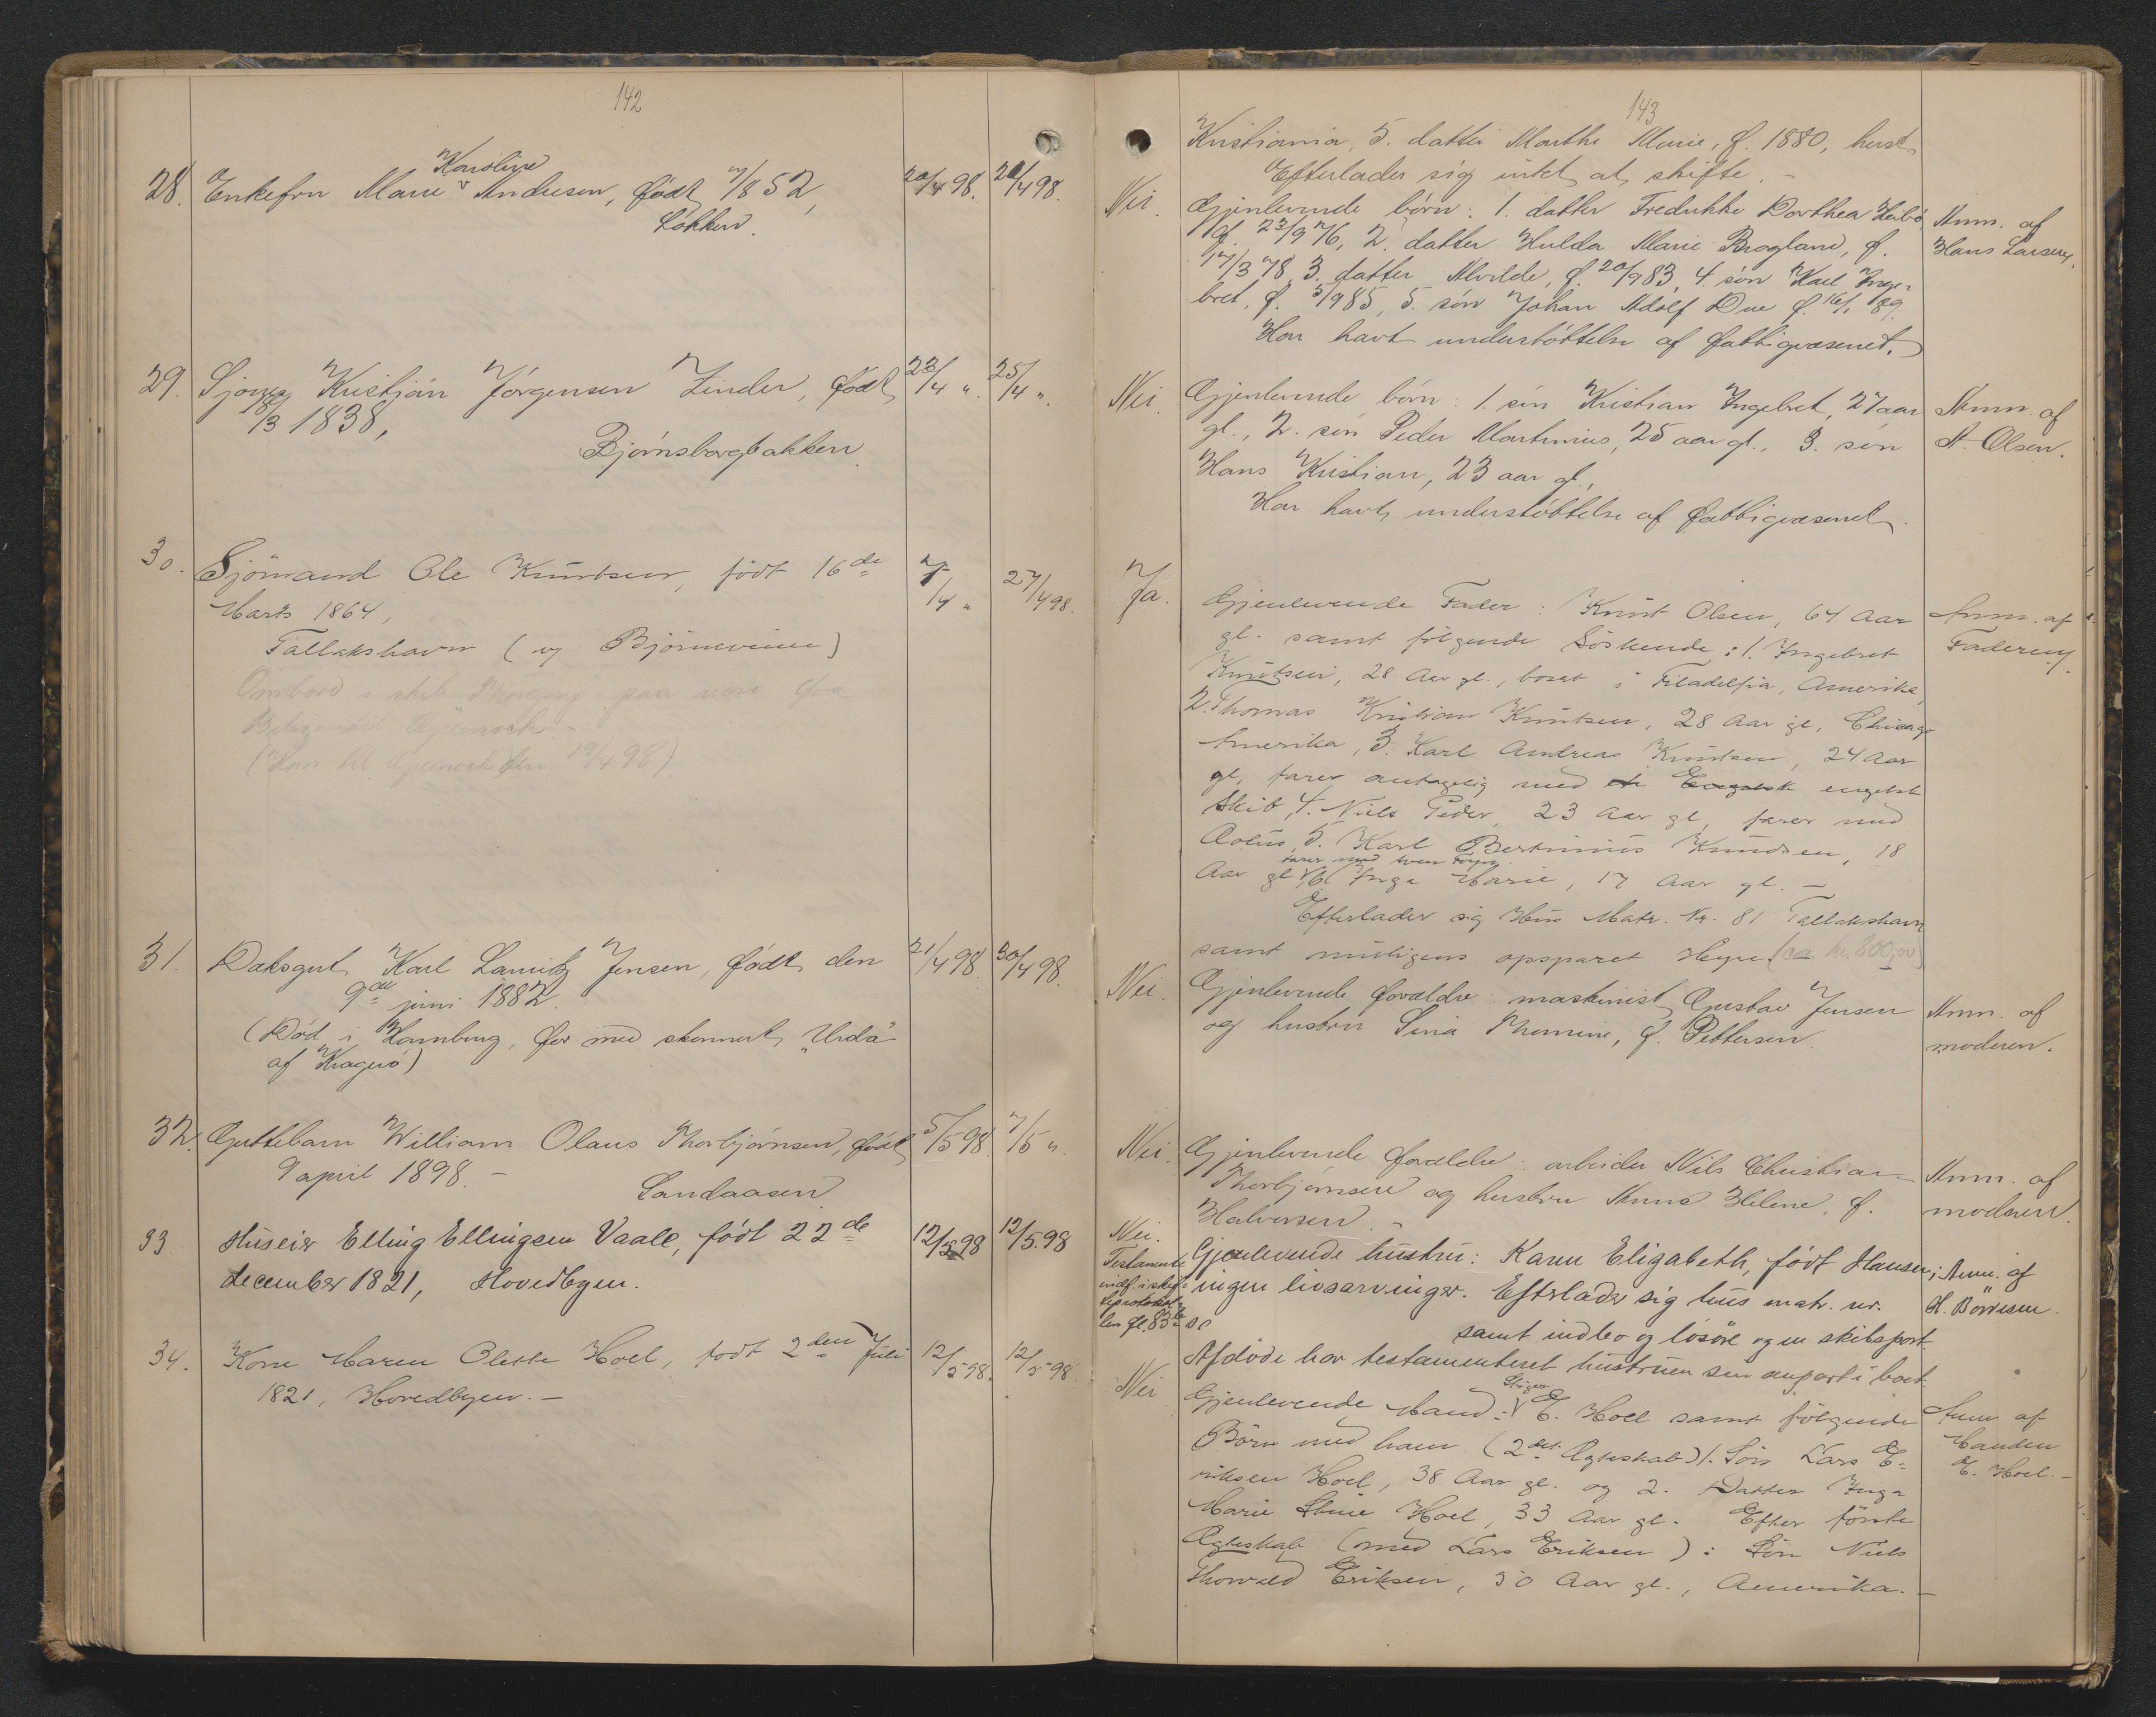 142
28. Enkefru Marie Karoline Andresen, født 7/8 52, 20/4 98. 21/4 98.
Løkken.
29. Kristian Jørgensen Linder, født 23/4 " 25/4 ".
1838,
Bjørnsborgbakken
30. Sjömand Ole Knutsen, födt 16de 7/4 " 27/4 98.
Marts 1864,
Tallakshavn ( Björneveien)
Ombord i skib paa reise fra
til Greenock. -
(Kom til Greenock den 19/4 98)
31. Daksgut Karl Lauritz Jensen, født den 21/4 98 30/4 98.
9de juni 1882.
(Død i Hamburg, for med skonnert "Urda"
af Kragerø)
32. Guttebarn William Olaus Thorbjørnsen, født 5/5 98 7/5 ".
9 april 1898. -
Sandaasen
33 Huseier Elling Ellingsen Vaale, født 22de 12/5 98 12/5.98
december 1821, Hovedbyen.
34. Kone Maren Olette Hoel, født 2den Juli 12/5 98. 12/5 98
1821, Hovedbyen. -
143
Kristiania, 5. datter Marthe Marie, f. 1880, her.
Efterlader sig intet at skifte. -
Nei. Gjenlevende børn: 1. datter Fredrikke Dorthea Anm. af
f. 23/9 76, 2. datter Hulda Marie Brogland, f. Hans Larsen.
17/3 78, 3. datter Alvilde, f. 20/9 83, 4. søn Karl Inge-
bret, f. 5/9 85, 5. søn Johan Adolf Due f. 16/1 89.
Har havt understøttelse af fattigvæsenet.
Nei. Gjenlevende børn: 1. søn Kristian Ingebret, 27 aar Anm. af
gl., 2. søn Peder Martinius, 25 aar gl., 3. søn A. Olsen.
Hans Kristian, 23 aar gl.,
Har havt understøttelse af fattigvæsenet.
Ja. Gjenlevende Fader: Knut Olsen, 64 Aar Anm. af
gl. samt følgende Söskende: 1. Ingebret Faderen.
Knutsen, 28 Aar gl., bosat i Filadelfia, Amerika,
2. Thomas Kristian Knutsen, 28 Aar gl, Chicago
Amerika, 3. Karl Andreas Knutsen, 24 Aar
gl, farer antagelig med engelsk
Skib, 4. Niels Peder, 23 Aar gl, farer med
Æolus, 5. Karl Bertinius Knudsen, 18
farer med
Aar gl 6 Inga Marie, 17 Aar gl. -
Efterlader sig Hus Matr. Nr. 81 Tallakshavn
samt muligens opsparet Hyre. (ca. kr. 800,00)
Nei. Gjenlevende forældre: maskinist Gustav Jensen Anm. af
og hustru Sina Thomine, f. Pettersen. moderen.
Nei. Gjenlevende forældre: arbeider Nils Christian Anm. af
Thorbjørnsen og hustru Anna Helene, f. moderen.
Halvorsen. -
Nei. Gjenlevende hustru: Karen Elizabeth, født Hansen; Anm. af
Testamente indf. i skif- ingen livsarvinger. Efterlader sig hus matr. nr. H.
teprotokol-
len fl. 83
samt indbo og løsøre og en skibspart
Afdøde har testamenteret hustruen sin anpart i boet.
Nei Gjenlevende Mand: E. Hoel samt følgende Anm af
Børn med ham (2det Ægteskab) 1. Søn Lars E- Manden
riksen Hoel, 38 Aar gl. og 2. Datter Inga E. Hoel. -
Marie Hoel, 33 Aar gl. Efter første
Ægteskab (med Lars Eriksen): Søn Niels
Thorvald Eriksen, 50 Aar gl., Amerika. -